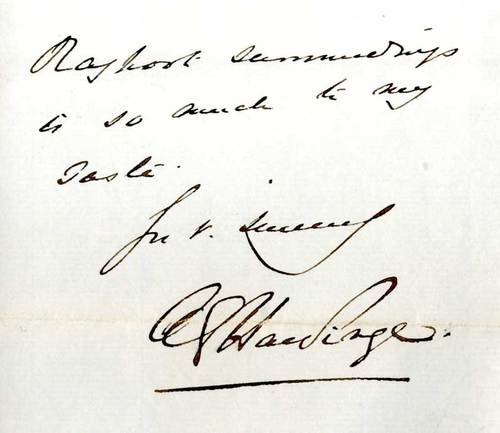 Rajkort surroundings
is so much to my
taste.
Yrs v. sincerely
AEHardinge.